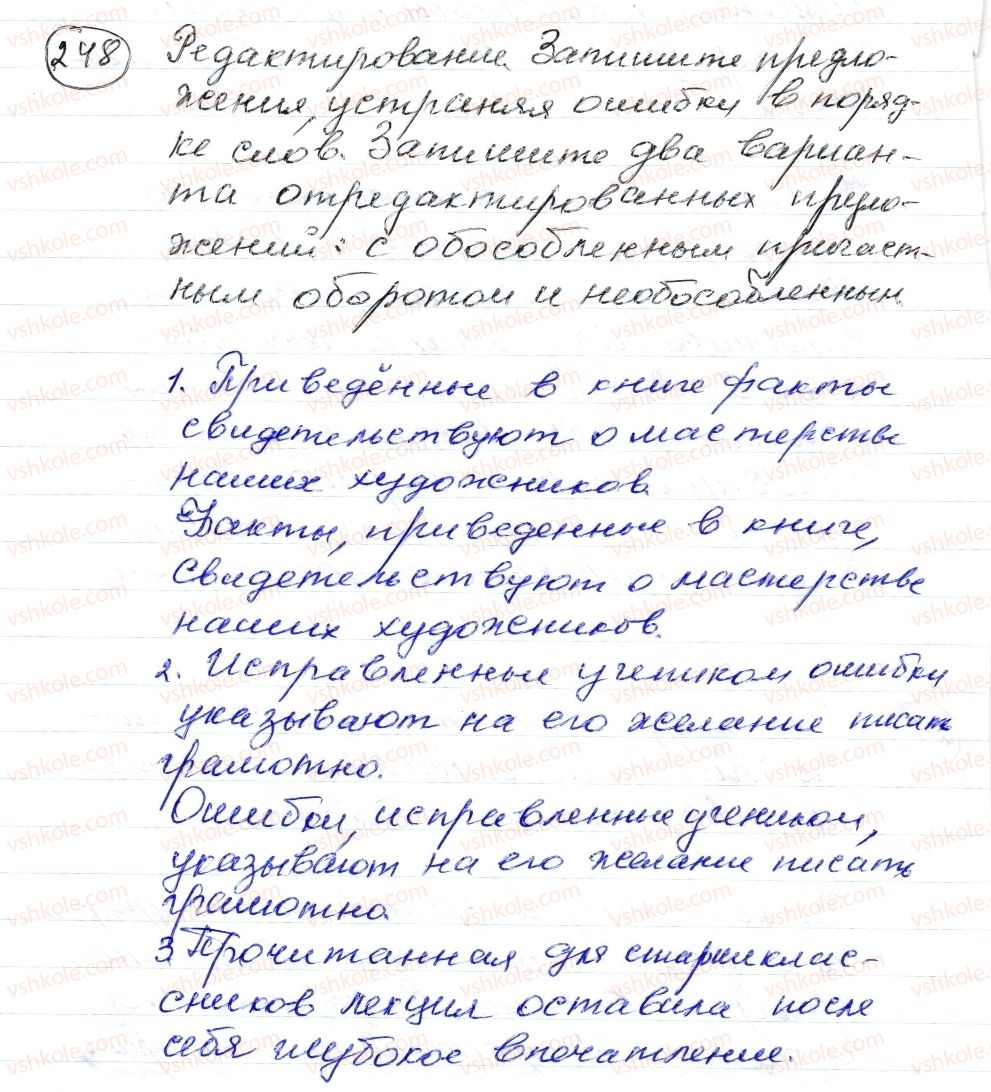 248 Редактирование. Запишите предло-
жения, устраняя ошибки в поряд-
ке слов. Запишите два вариан-
та отредактированных предло-
жений: с обособленным причаст-
ным оборотом и необособленным.
1. Приведённые в книге факты
свидетельствуют о мастерстве
наших художников.
Факты, приведенные в книге,
свидетельствуют о мастерстве
наших художников.
2. Исправленные учеником ошибки
указывают на его желание писать
грамотно.
Ошибки, исправленные учеником,
указывают на его желание писать
грамотно.
3. Прочитанная для старшеклас-
сников лекция оставила после
себя глубокое впечатление.